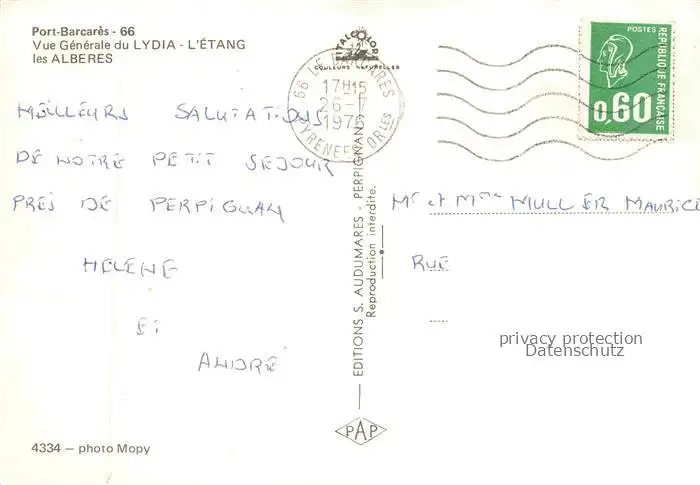 Port-Barcarès - 66
Vue Générale du LYDIA - L'ÉTANG
les ALBERES
ITALCOLOR
COULEURS NATURELLES
66 LE BARCARES
17H15
26-7
1976
PYRENEES ORLES
POSTES
RÉPUBLIQUE FRANÇAISE
0,60
MEILLEURS SALUTATIONS
DE NOTRE PETIT SEJOUR
PRES DE PERPIGNAN
HELENE
ET
ANDRÉ
EDITIONS S. AUDUMARES - PERPIGNAN
Reproduction interdite.
Mr et Mme MULLER MAURICE
RUE
privacy protection
Datenschutz
PAP
4334 — photo Mopy